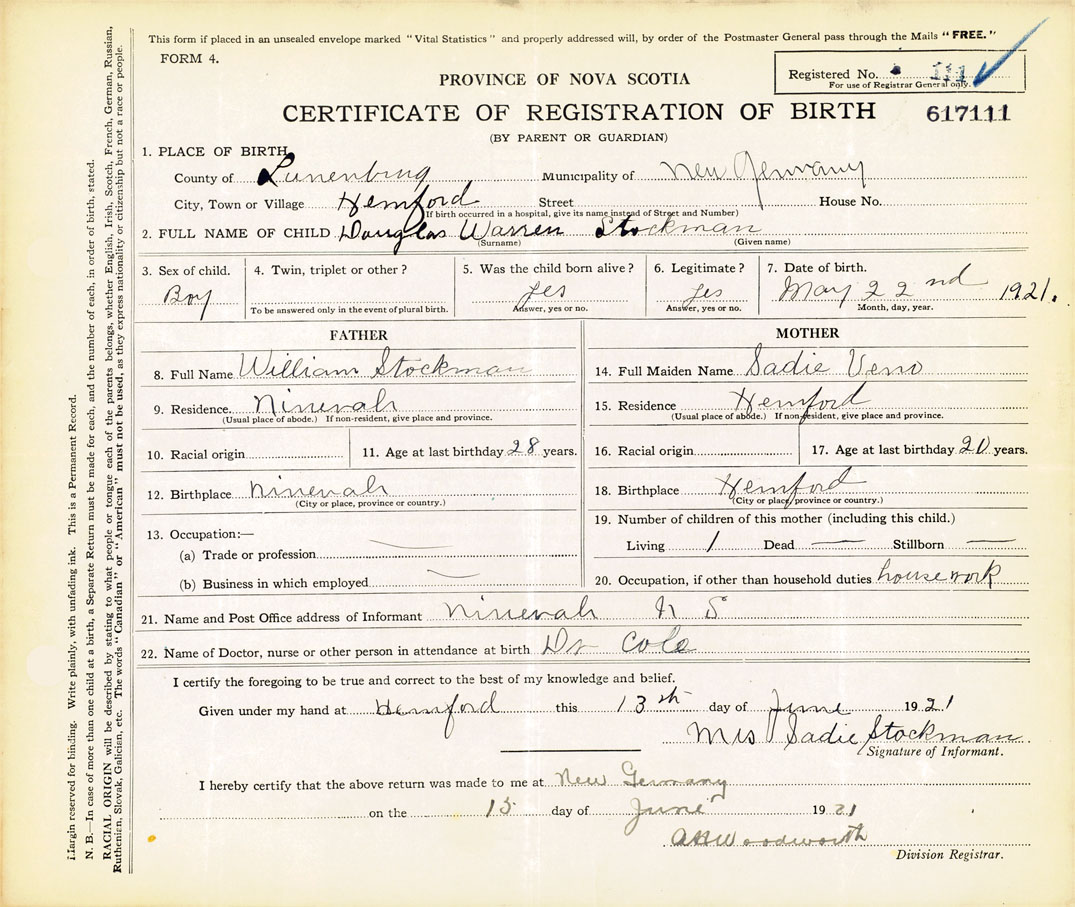 This form if placed in an unsealed envelope marked "Vital Statistics" and properly addressed will, by order of the Postmaster General pass through the Mails "FREE."
FORM 4.
Registered No. 111
For use of Registrar General only.
PROVINCE OF NOVA SCOTIA
CERTIFICATE OF REGISTRATION OF BIRTH 617111
(BY PARENT OR GUARDIAN)
1. PLACE OF BIRTH
County of Lunenburg Municipality of New Germany
City, Town or Village Hemford Street House No.
(If birth occurred in a hospital, give its name instead of Street and Number)
2. FULL NAME OF CHILD Douglas Warren Stockman
(Surname) (Given name)
3. Sex of child. 4. Twin, triplet or other? 5. Was the child born alive? 6. Legitimate? 7. Date of birth.
Boy yes yes May 22nd 1921.
To be answered only in the event of plural birth. Answer, yes or no. Answer, yes or no. Month, day, year.
FATHER MOTHER
8. Full Name William Stockman 14. Full Maiden Name Sadie Veno
9. Residence. Ninevah 15. Residence Hemford
(Usual place of abode.) If non-resident, give place and province. (Usual place of abode.) If non-resident, give place and province.
10. Racial origin 11. Age at last birthday 28 years. 16. Racial origin 17. Age at last birthday 20 years.
12. Birthplace Ninevah 18. Birthplace Hemford
(City or place, province or country.) (City or place, province or country.)
13. Occupation:— 19. Number of children of this mother (including this child.)
(a) Trade or profession Living 1 Dead — Stillborn —
(b) Business in which employed 20. Occupation, if other than household duties house work
21. Name and Post Office address of Informant Ninevah N S
22. Name of Doctor, nurse or other person in attendance at birth Dr Cole
I certify the foregoing to be true and correct to the best of my knowledge and belief.
Given under my hand at Hemford this 13th day of June 1921
Mrs Sadie Stockman
Signature of Informant.
I hereby certify that the above return was made to me at New Germany
on the 15 day of June 1921
Woodworth
Division Registrar.
Margin reserved for binding. Write plainly, with unfading ink. This is a Permanent Record.
N. B.—In case of more than one child at a birth, a Separate Return must be made for each, and the number of each, in order of birth, stated.
RACIAL ORIGIN will be described by stating to what people or tongue each of the parents belongs, whether English, Irish, Scotch, French, German, Russian,
Ruthenian, Slovak, Galician, etc. The words "Canadian" or "American" must not be used, as they express nationality or citizenship but not a race or people.